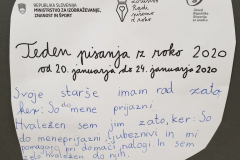 REPUBLIKA SLOVENIJA
MINISTRSTVO ZA IZOBRAŽEVANJE,
ZNANOST IN ŠPORT
Radi
pišemo z
roko
Teden pisanja z roko 2020
od 20. januarja do 24. januarja 2020
Svoje starše imam rad zato,
ker: So do mene prijazni
Hvaležen sem jim zato, ker: So
do mene prijazni ljubeznivi in mi
pomagajo pri domači nalogi In sem
zelo hvaležen do njih.